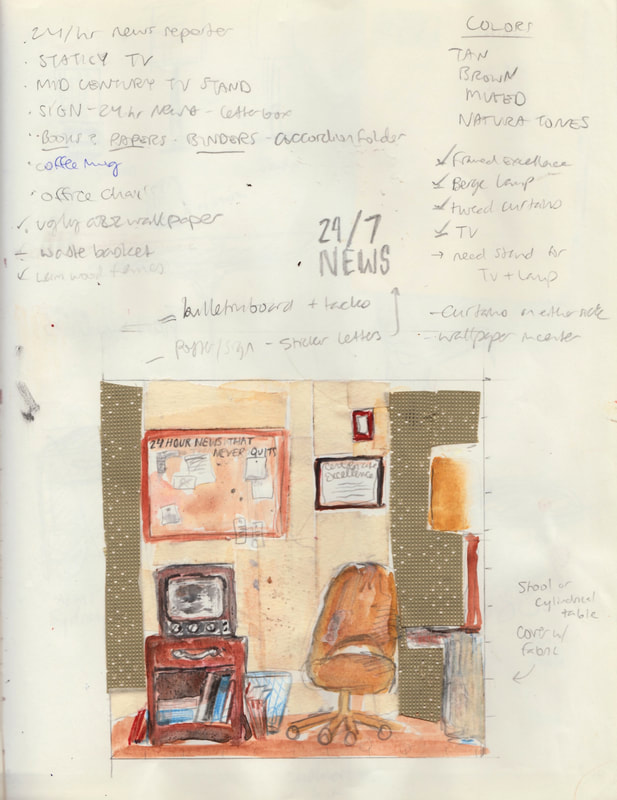 24/hr news reporter
STATICY TV
MID CENTURY TV STAND
SIGN - 24 hr NEWS - Letterbox
BOOKS & PAPERS - BINDERS - accordion folder
coffee mug
office chair
ugly wallpaper
waste basket
wood frames
bulletin board + tacks
poster/sign - sticker letters
24/7
NEWS
COLORS
TAN
BROWN
MUTED
NATURA TONES
Framed excellence
Beige lamp
tweed curtains
TV
→ need stand for
TV + Lamp
- curtains on either side
- wallpaper in center
24 HOUR NEWS THAT
NEVER QUITS
Excellence
Stool or
cylindrical
table
cover w/
fabric